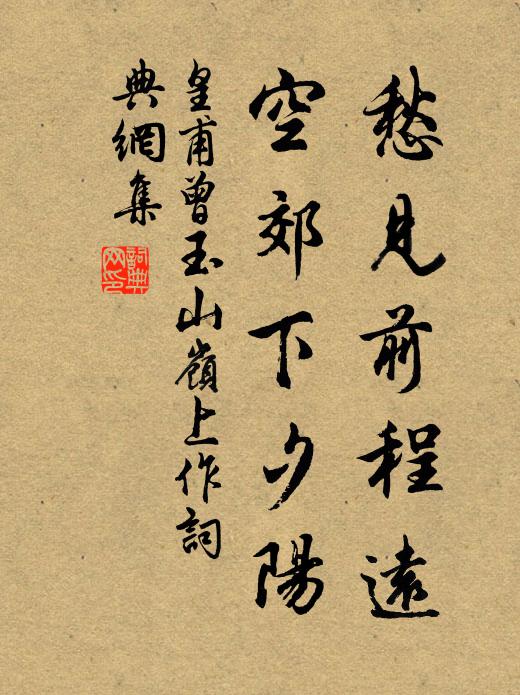 愁見前程遠
空郊下夕陽
皇甫曾玉山嶺上作詞
典網集
詞典網印